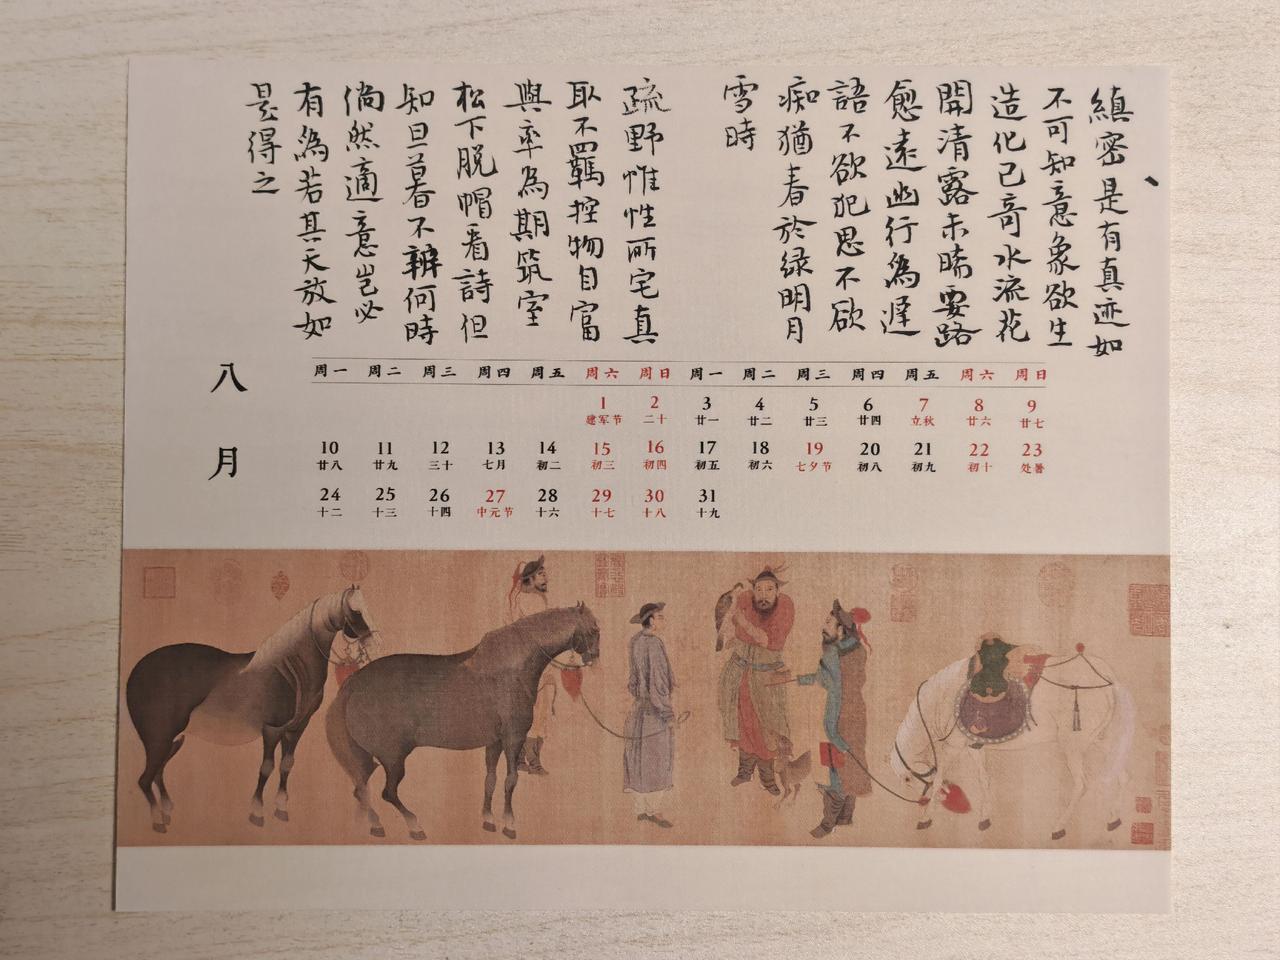 縝密是有真迹如
不可知意象欲生
造化已奇水流花
開清露未晞要路
愈遠幽行為遲
語不欲犯思不欲
痴猶春於緑明月
雪時
疏野惟性所宅真
取不羈控物自富
與率為期筑室
松下脱帽看詩但
知旦暮不辨何時
倘然適意豈必
有為若其天放如
是得之
八月
周一 周二 周三 周四 周五 周六 周日 周一 周二 周三 周四 周五 周六 周日
1 2 3 4 5 6 7 8 9
建军节 二十 廿一 廿二 廿三 廿四 立秋 廿六 廿七
10 11 12 13 14 15 16 17 18 19 20 21 22 23
廿八 廿九 三十 七月 初二 初三 初四 初五 初六 七夕节 初八 初九 初十 处暑
24 25 26 27 28 29 30 31
十二 十三 十四 中元节 十六 十七 十八 十九